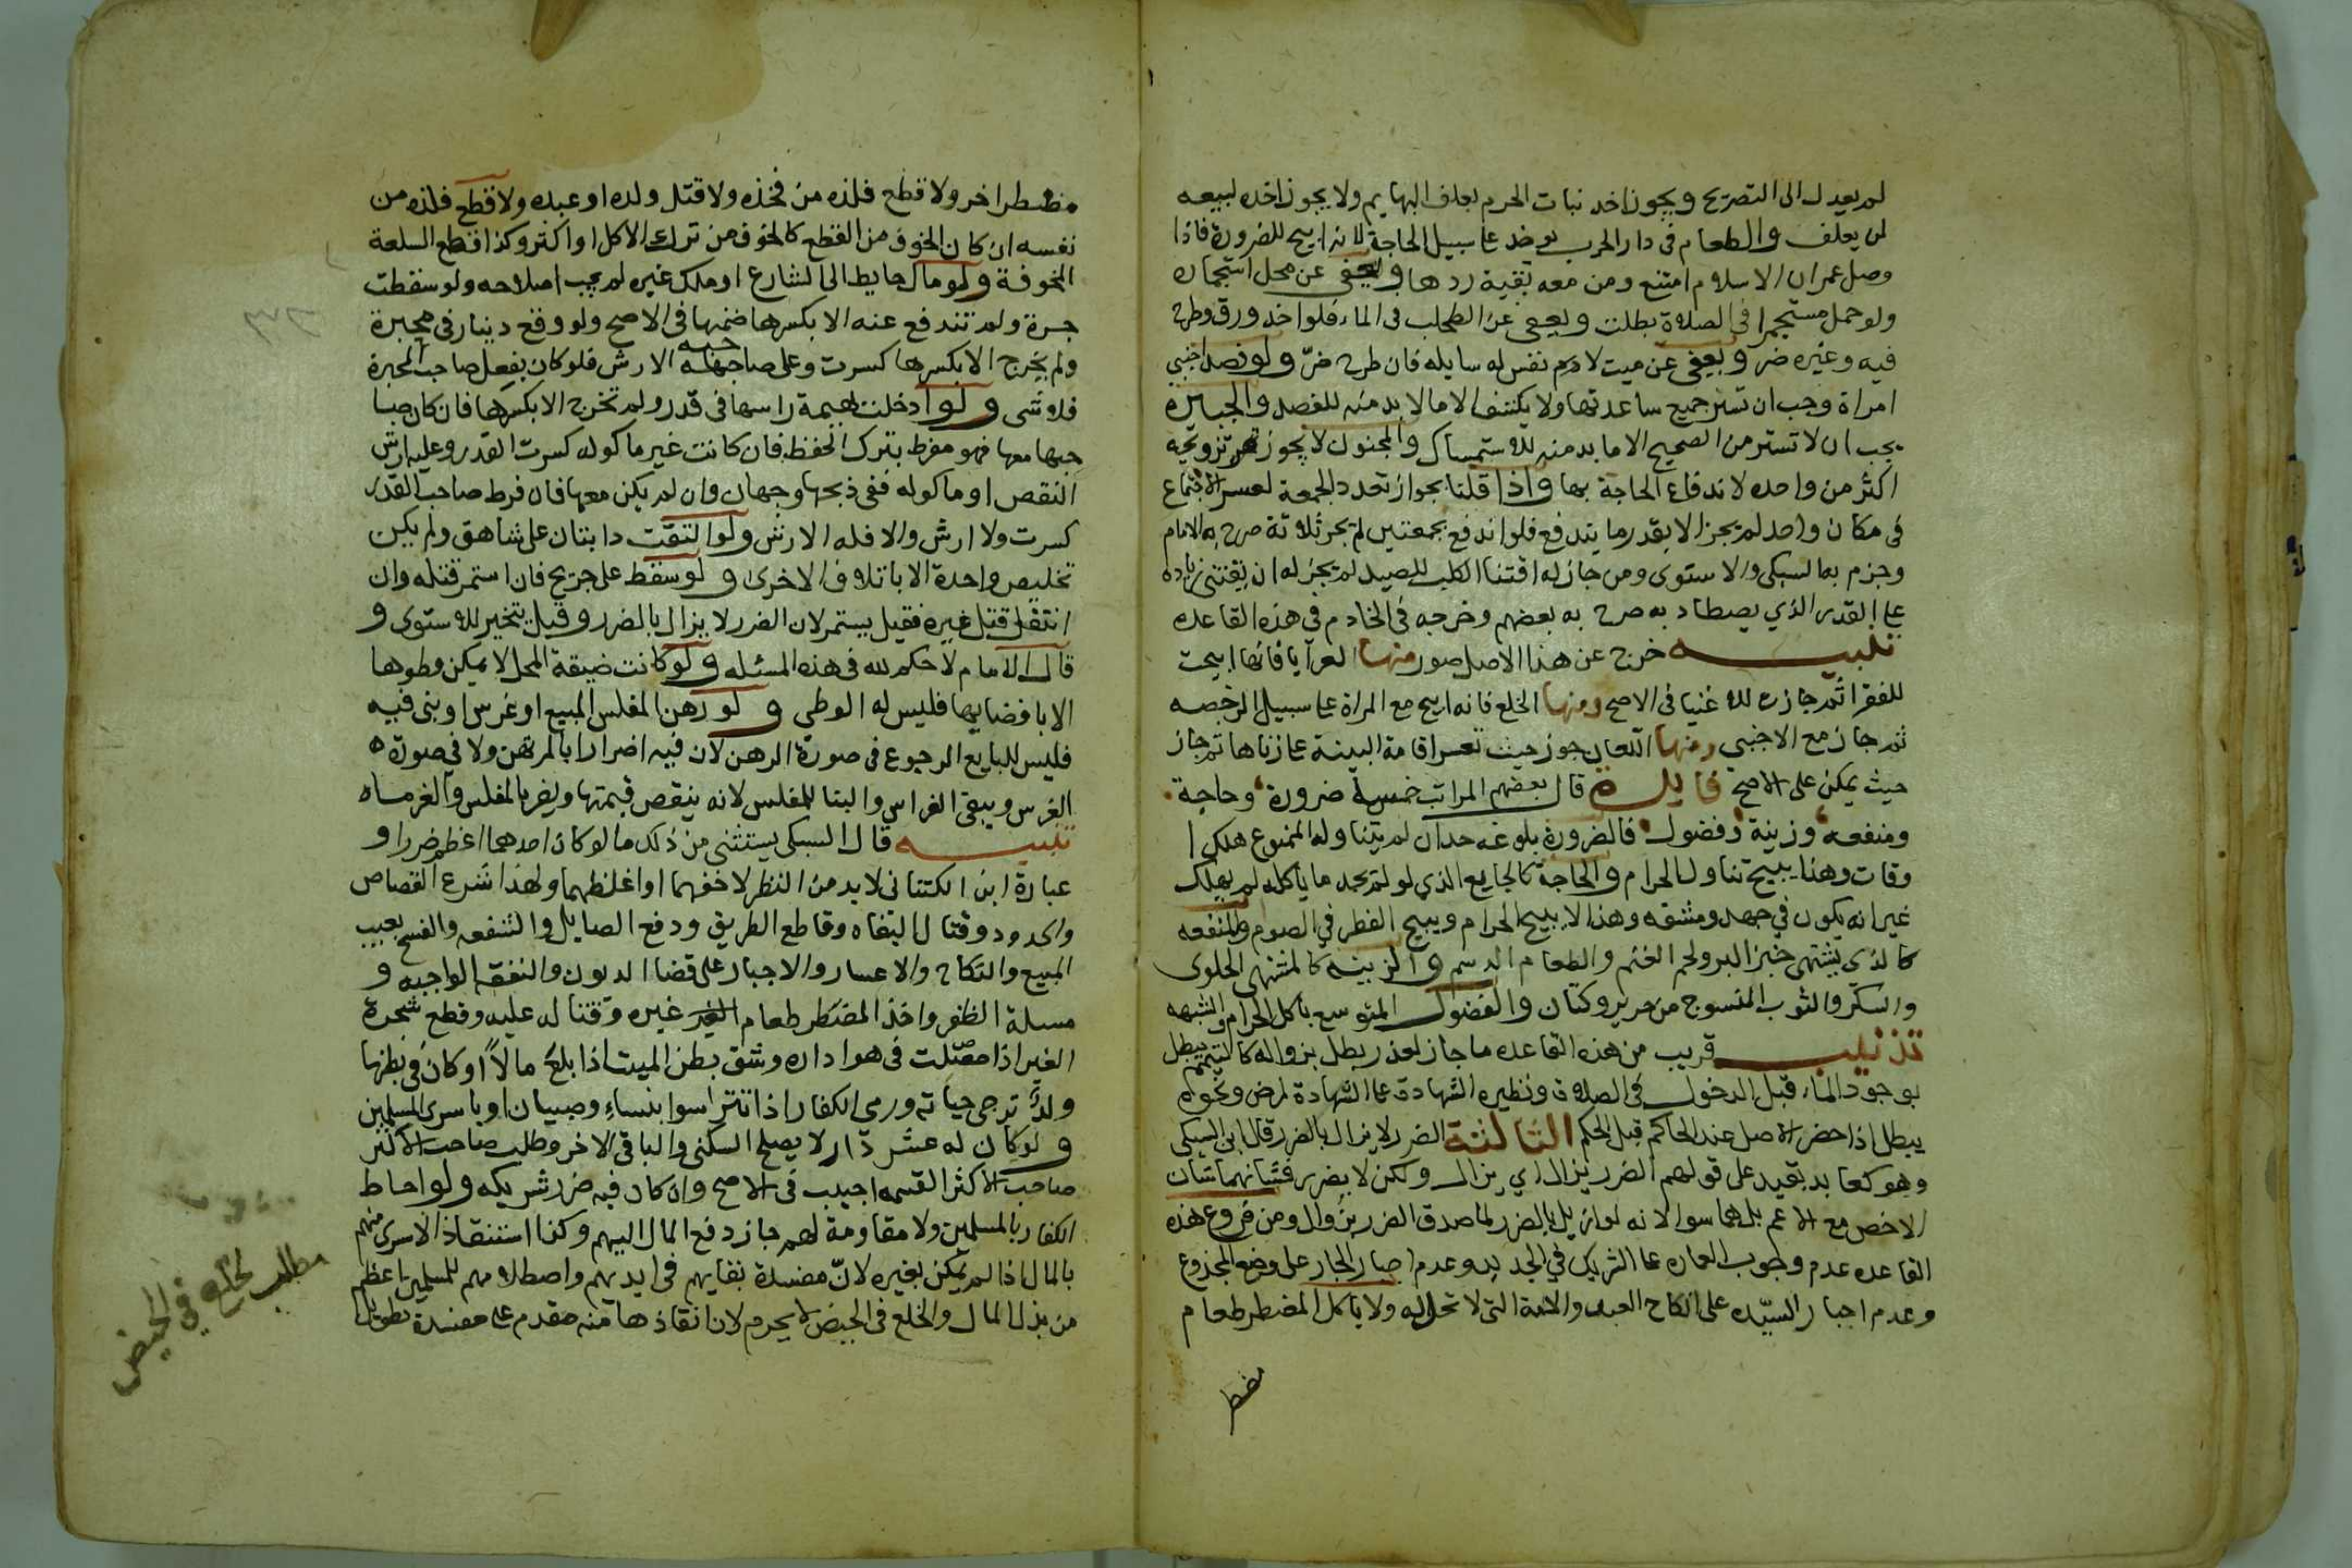 لم يعدل الى التصريح ويجوز اخد نبات الحرم لعلف البهايم ولا يجوز اخده لبيعه
لمن يعلف والطعام فى دار الحرب يوخد على سبيل الحاجة لانه ابيح للضرورة فاذا
وصل عمران الاسلام امتنع ومن معه بقية ردها ويعفى عن محل استجماره
ولو حمل مستجمرا فى الصلاة بطلت ويعفى عن الطحلب فى الماء فلو اخد ورق وطرح
فيه وغيره ضر ويعفى عن ميت لا دم نفس له سايله فان طرح ضرّ ولو فصد اجنبى
امراة وجب ان تستر جميع ساعدها ولا يكشف الا ما لا بد منه للفصد والجبيرة
يجب ان لا تستر من الصحيح الا ما بد منه للاستمساك والمجنون لا يجوز تزويجه
اكثر من واحده لاندفاع الحاجة بها واذا قلنا بجواز تعدد الجمعة لعسر الاجتماع
فى مكان واحد لم يجز الا بقدر ما يندفع فلو اندفع بجمعتين لم يجز ثلاثة صرح به الامام
وجزم به السبكى والاسنوى ومن جاز له اقتنا الكلب للصيد لم يجز له ان يقتنى زيادة
على القدر الذي يصطاد به صرح به بعضهم وخرجه فى الخادم في هذه القاعده
تنبيه خرج عن هذا الاصل صور منها العرايا فانها ابيحت
للفقرا ثم جازت للاغنيا فى الاصح ومنها الخلع فانه ابيح مع المراة على سبيل الرخصه
ثم جاز مع الاجنبي ومنها اللعان جوز حيث تعسر اقامة البينة على زناها ثم جاز
حيث يمكن على الاصح فايدة قال بعضهم المراتب خمسة ضرورة وحاجة
ومنفعه وزينة وفضول فالضرورة بلوغه حدا ان لم يتناول الممنوع هلك ا
وقات وهذا يبيح تناول الحرام والحاجة كالجايع الذي لو لم يجد ما ياكله لم يهلك
غير انه يكون في جهد ومشقه وهذا لا يبيح الحرام ويبيح الفطر في الصوم والمنفعه
كالذي يشتهى خبز البر ولحم الغنم والطعام الدسم والزينه كالمشتهى الحلوى
والسكر والثوب المنسوج من حرير وكتان والفضول المتوسع باكل الحرام والشبهه
تذنيب قريب من هذه القاعده ما جاز لعذر بطل بزواله كالتيمم يبطل
بوجود الماء قبل الدخول فى الصلاة ونظيره الشهادة على الشهادة لمرض ونحوه
يبطل اذا حضر الاصل عند الحاكم قبل الحكم الثالثة الضرر لا يزال بالضرر قال ابن السبكى
وهو كعايد بقيد على قولهم الضرر يزال اي يزال ولكن لا بضرر فشانهما شان
الاخص مع الاعم بل هما سوا لانه لو ازيل بالضرر لما صدق الضرر يزال ومن فروع هذه
القاعده عدم وجوب العماره على الشريك في الجديد وعدم اجبار الجار على وضع الجذوع
وعدم اجبار السيّد على انكاح العبد والامة التى لا تحل له ولا ياكل المضطر طعام
مضطر
مضطر اخر ولا قطع فلذه من فخذه ولا قتل ولده او عبده ولا قطع فلذه من
نفسه ان كان الخوف من القطع كالخوف من ترك الاكل او اكثر وكذا قطع السلعة
المخوفة ولو مال حايط الى الشارع او ملك غيره لم يجب اصلاحه ولو سقطت
جرة ولم تندفع عنه الا بكسرها ضمنها فى الاصح ولو وقع دينار فى محبرة
ولم يخرج الا بكسرها كسرت وعلى صاحبه الارش فلو كان بفعل صاحب المحبرة
فلا شى ولو ادخلت بهيمة راسها فى قدر ولم تخرج الا بكسرها فان كان صا
حبها معها فهو مفرط بترك الحفظ فان كانت غير ماكوله كسرت القدر وعليه ارش
النقص او ماكوله ففى ذبحها وجهان وان لم يكن معها فان فرط صاحب القدر
كسرت ولا ارش والا فله الارش ولو التقت دابتان على شاهق ولم يمكن
تخليص واحدة الا باتلاف الاخرى ولو سقط على جريح فان استمر قتله وان
انتقل قتل غيره فقيل يستمر لان الضرر لا يزال بالضرر وقيل يتخير للاستوى و
قال الامام لا حكم لله فى هذه المسئله ولو كانت ضيقة المحل لا يمكن وطوها
الا بافضايها فليس له الوطى ولو رهن المفلس المبيع او غرس او بنى فيه
فليس للبايع الرجوع فى صورة الرهن لان فيه اضرارا بالمرتهن ولا في صورة
الغرس ويبقى الغراس والبنا للمفلس لانه ينقص قيمتها ويضر بالمفلس والغرماء
تنبيه قال السبكى يستثنى من ذلك ما لو كان احدهما اعظم ضررا و
عبارة ابن الكتنانى لا بد من النظر لاخفهما او اغلظهما ولهذا شرع القصاص
والحدود وقتال البغاه وقاطع الطريق ودفع الصايل والشفعه والفسخ بعيب
المبيع والنكاح والاعسار والاجبار على قضا الديون والنفقه الواجبه و
مسيلة الظفر واخذ المضطر طعام غيره وقتاله عليه وقطع شجرة
الغير اذا حصّلت فى هوا داره وشق بطن الميت اذا بلع مالاً او كان فى بطنها
ولدٌ ترجى حياته ورمى الكفار اذا تترسوا بنساءٍ وصبيان او باسرى المسلمين
ولو كان له عشر دار لا يصلح السكنى والباقى لاخر وطلب صاحب الاكثر
صاحب الاكثر القسمه اجيب فى الاصح وان كان فيه ضرر شريكه ولو احاط
الكفار بالمسلمين ولا مقاومة لهم جاز دفع المال اليهم وكذا استنقاذ الاسرى منهم
بالمال اذا لم يمكن بغيره لانّ مفسدة بقايهم فى ايديهم واصطلامهم للمسلمين اعظم
من بذل المال والخلع فى الحيض لا يحرم لان انقاذها منه مقدم على مفسدة تطويل
مطلب لخلع في الحيض